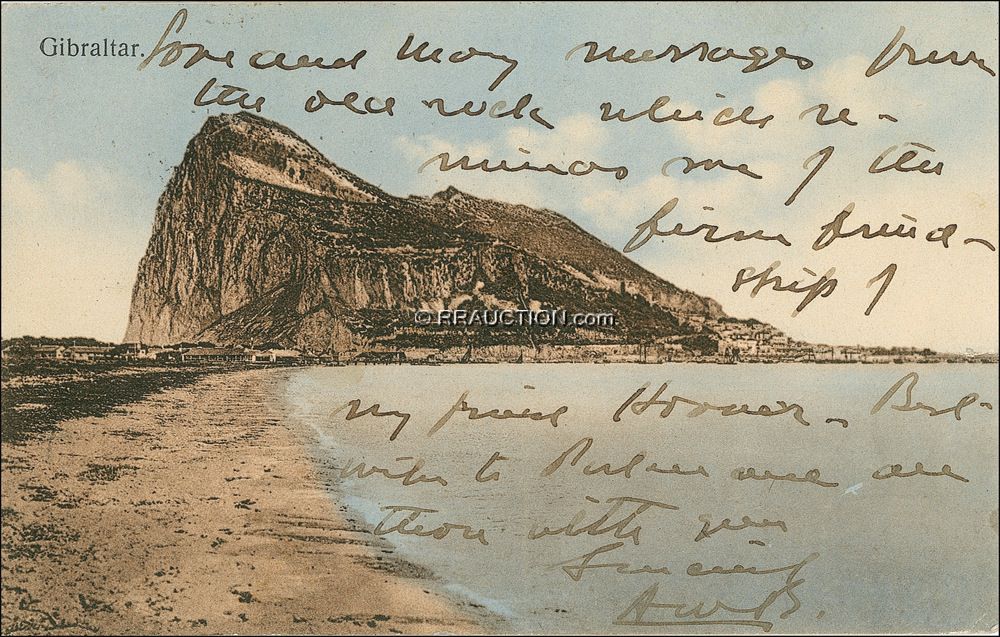 Gibraltar.
Love and many messages from
the old rock which re-
minds me of the
firm friend-
ship of
© RRAUCTION.com
my friend Hoover. Best
to Palmer and all
those with you
Sincerely
AWB.